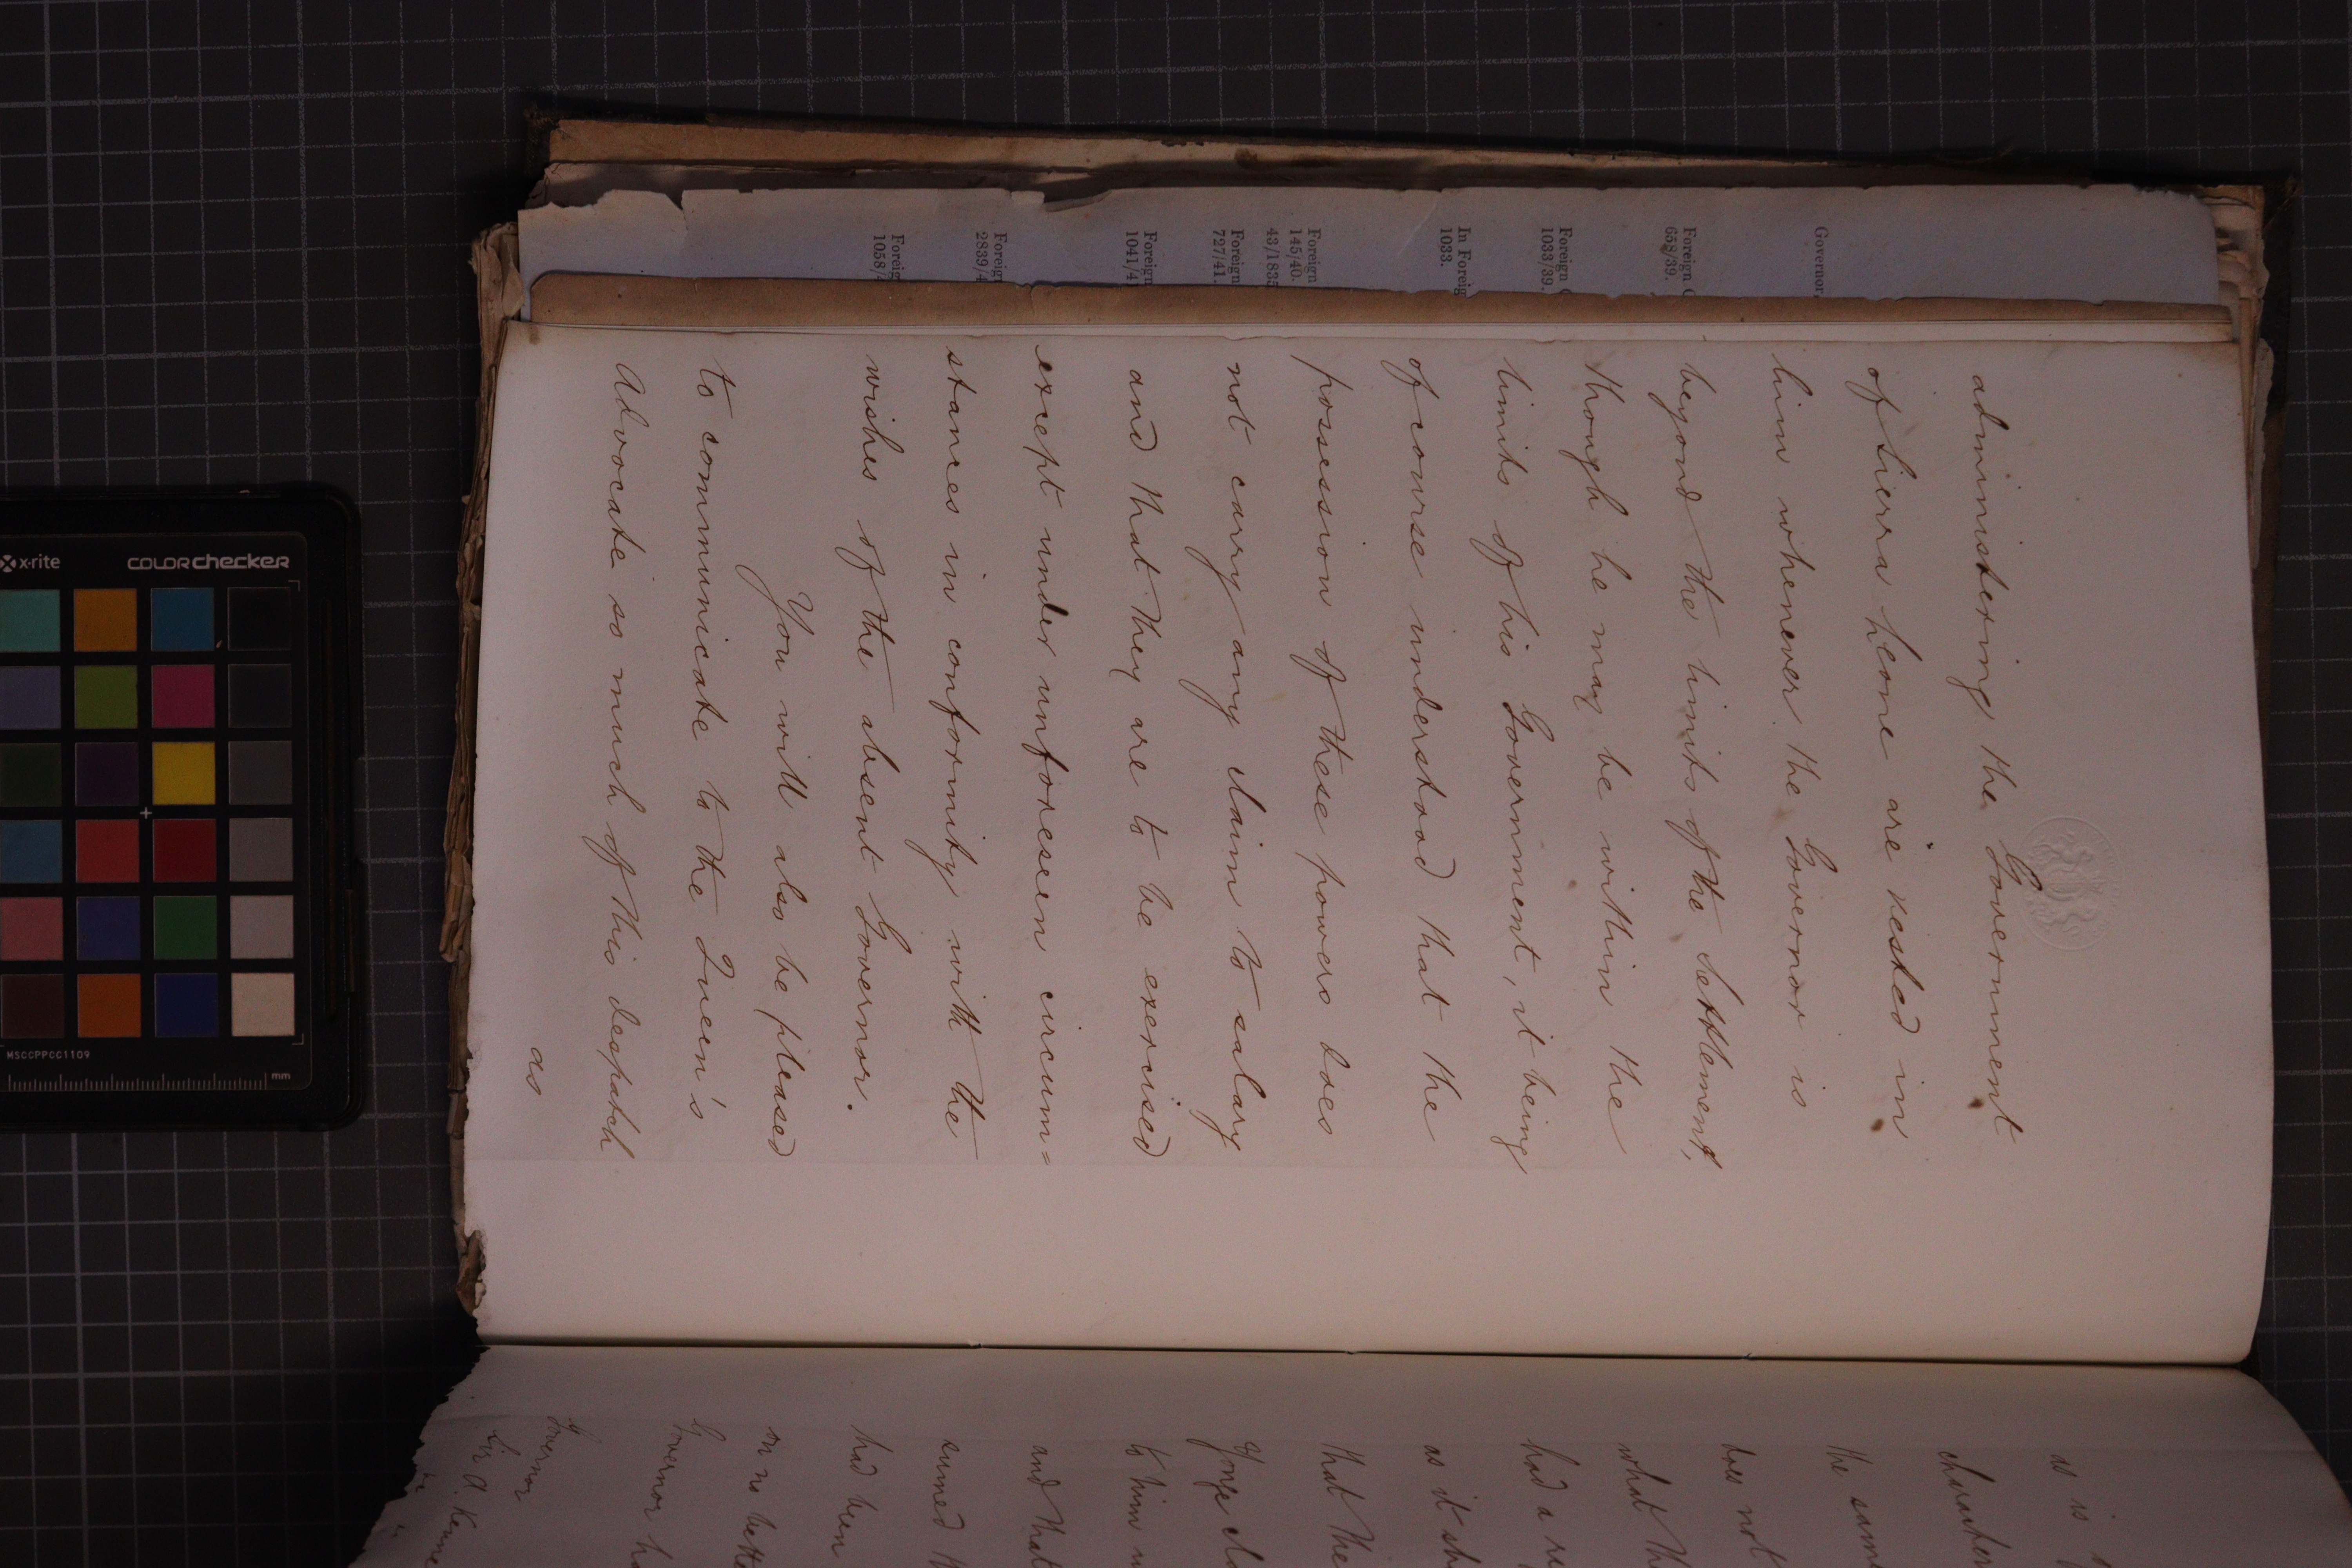 administering the Government
of Sierra Leone are vested in
him whenever the Governor is
beyond the limits of the Settlement,
though he may be within the
limits of his Government, it being
of course understood that the
possession of these powers does
not carry any claim to salary
and that they are to be exercised
except under unforeseen circum=
stances in conformity with the
wishes of the absent Governor.
You will also be pleased
to communicate to the Queen's
Advocate so much of this despatch
as
Governor,
Foreign
658/39.
Foreign
1033/39.
In Foreig
1033.
Foreign
145/40.
43/1835
Foreign
727/41.
Foreign
1041/41
Foreign
2839/4
Foreig
1058/4
as is
the same
does not
what th
had a re
as it sh
that the
Yonge
to him
and that
sumed th
had been
on no bette
Governor ha
Governor
Sir A. Kenne
x-rite
COLORchecker
MSCCPPCC1109
mm